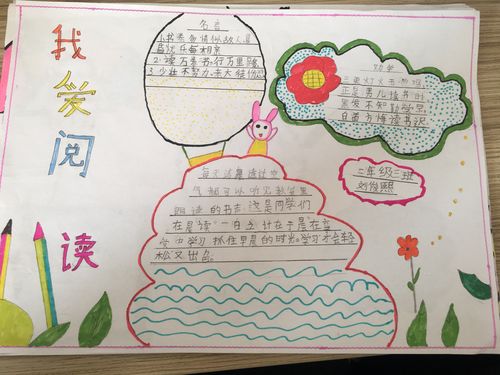 我爱阅读
名言
1.书籍
2.读万卷书,行万里路
3.少壮不努力,老大徒伤悲
劝学
三更灯火五更鸡
正是男儿读书时
黑发不知勤学早
白首方悔读书迟
二年级三班
每天清晨
都可以听见教室里
朗读的书声这是同学们
在晨读"一日之计在于晨"在
中学习抓住早晨的时光学习才会轻
松又出色。